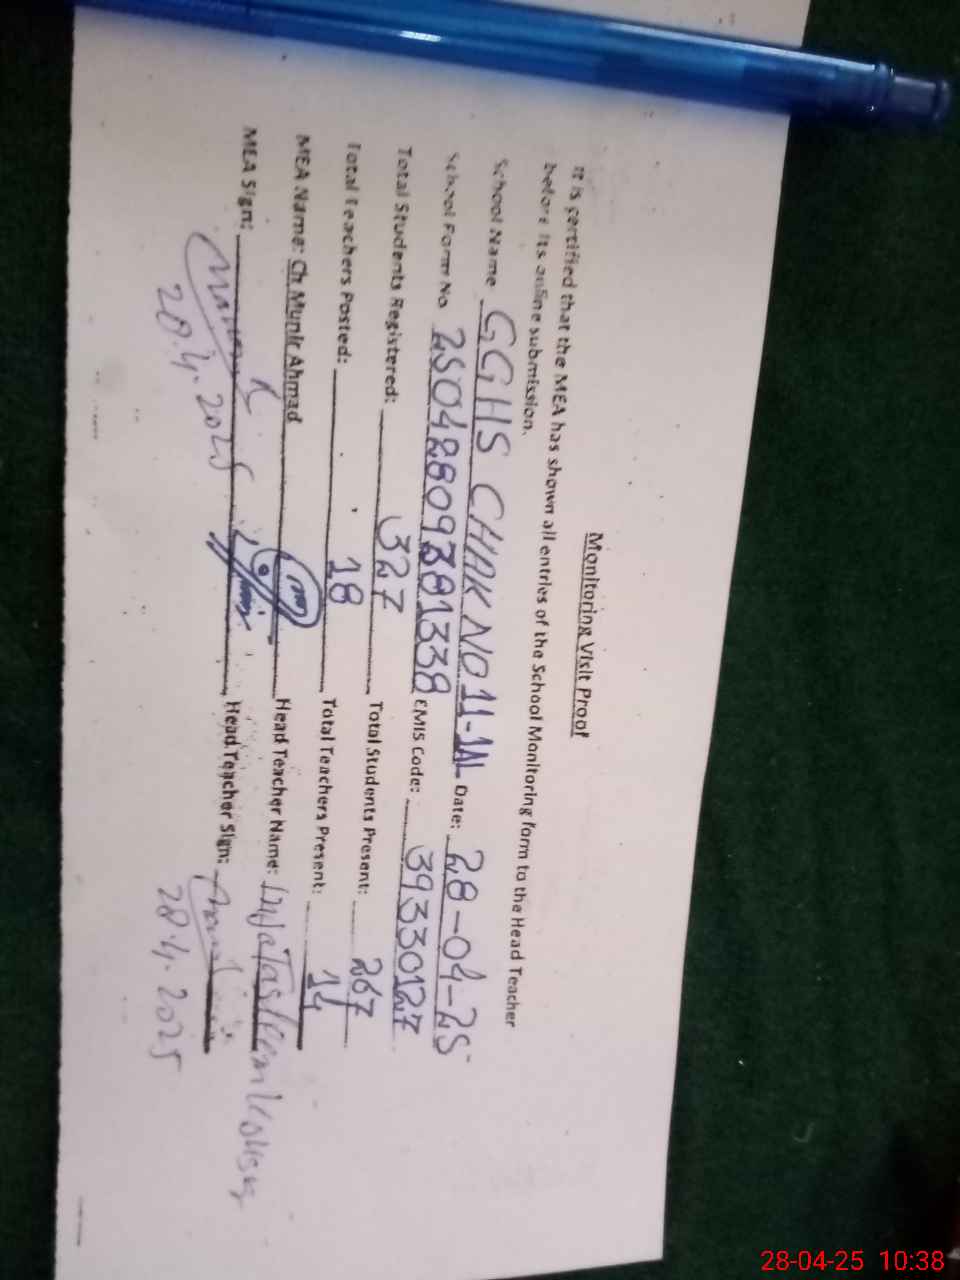 Monitoring Visit Proof
It is certified that the MEA has shown all entries of the School Monitoring form to the Head Teacher
before its online submission.
School Name GGHS CHAK NO 11-1AL Date: 28-04-25
School Form No 25042809381338 EMIS Code: 39330127
Total Students Registered: 327 Total Students Present: 267
Total Teachers Posted: 18 Total Teachers Present: 14
MEA Name: Ch Munir Ahmad Head Teacher Name: Tasleem Kousar
MEA Sign: Head Teacher Sign:
28.4.2025 28.4.2025
28-04-25 10:38